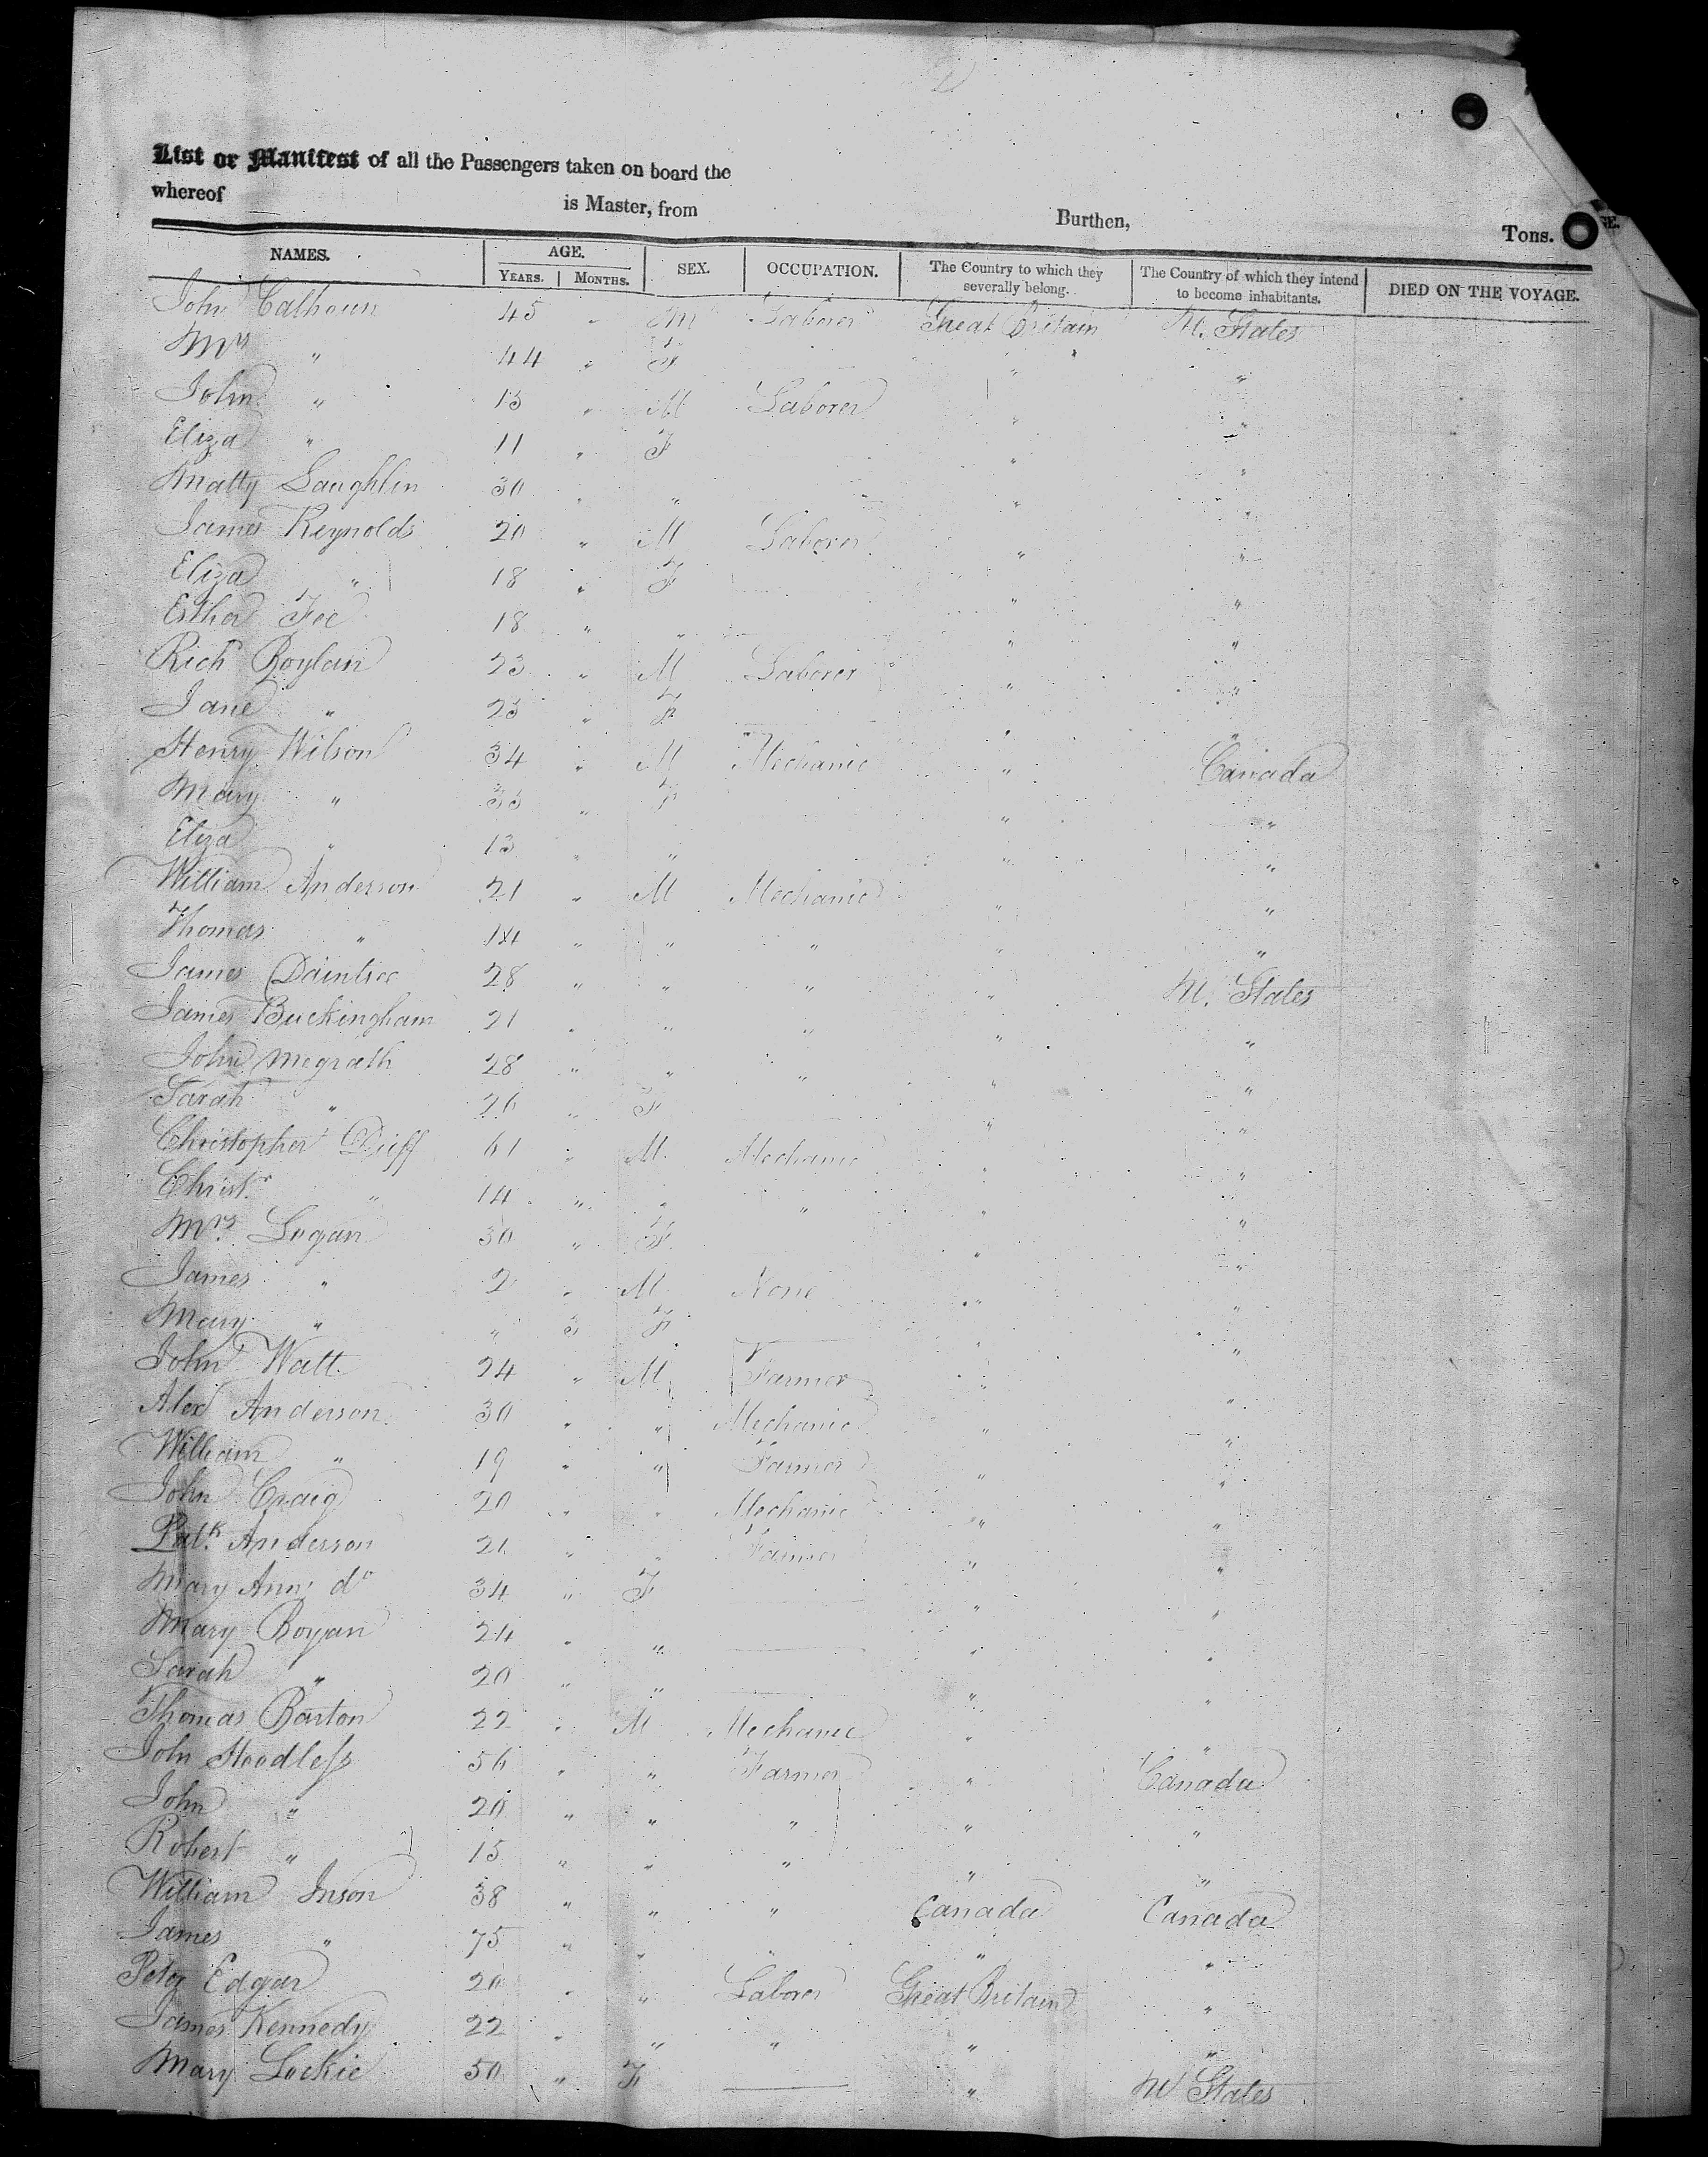 List or Manifest of all the Passengers taken on board the
whereof is Master, from Burthen, Tons.
NAMES. AGE. SEX. OCCUPATION. The Country to which they severally belong. The Country of which they intend to become inhabitants. DIED ON THE VOYAGE.
YEARS. MONTHS.
John Calhoun 45 " M Laborer Great Britain U. States
Mrs " 44 " F " "
John " 13 " M Laborer " "
Eliza " 11 " F " "
Matty Laughlin 30 " " " "
James Reynolds 20 " M Laborer " "
Eliza " 18 " F " "
Esther Fee 18 " " " "
Rich Boylan 23 " M Laborer " "
Jane " 23 " F " "
Henry Wilson 34 " M Mechanic " Canada
Mary " 33 " F " "
Eliza " 13 " " " "
William Anderson 21 " M Mechanic " "
Thomas " 14 " " " " "
James Daintree 28 " " " " U. States
James Buckingham 21 " " " " "
John Megrath 28 " " " " "
Sarah " 26 " F " "
Christopher Duff 61 " M Mechanic " "
Christr " 14 " " " " "
Mrs. Logan 30 " F " "
James " 2 " M None " "
Mary " " 3 F " "
John Watt 24 " M Farmer " "
Alex Anderson 30 " " Mechanic " "
William " 19 " " Farmer " "
John Craig 20 " " Mechanic " "
Patk Anderson 21 " " Farmer " "
Mary Ann do 34 " F " "
Mary Boyan 24 " " " "
Sarah " 20 " " " "
Thomas Barton 22 " M Mechanic " "
John Hoodless 56 " " Farmer " Canada
John " 20 " " " " "
Robert " 15 " " " " "
William Inson 38 " " " Canada Canada
James " 75 " " " " "
Edgar 20 " " Laborer Great Britain "
James Kennedy 22 " " " " "
Mary Lockie 50 " F " U States